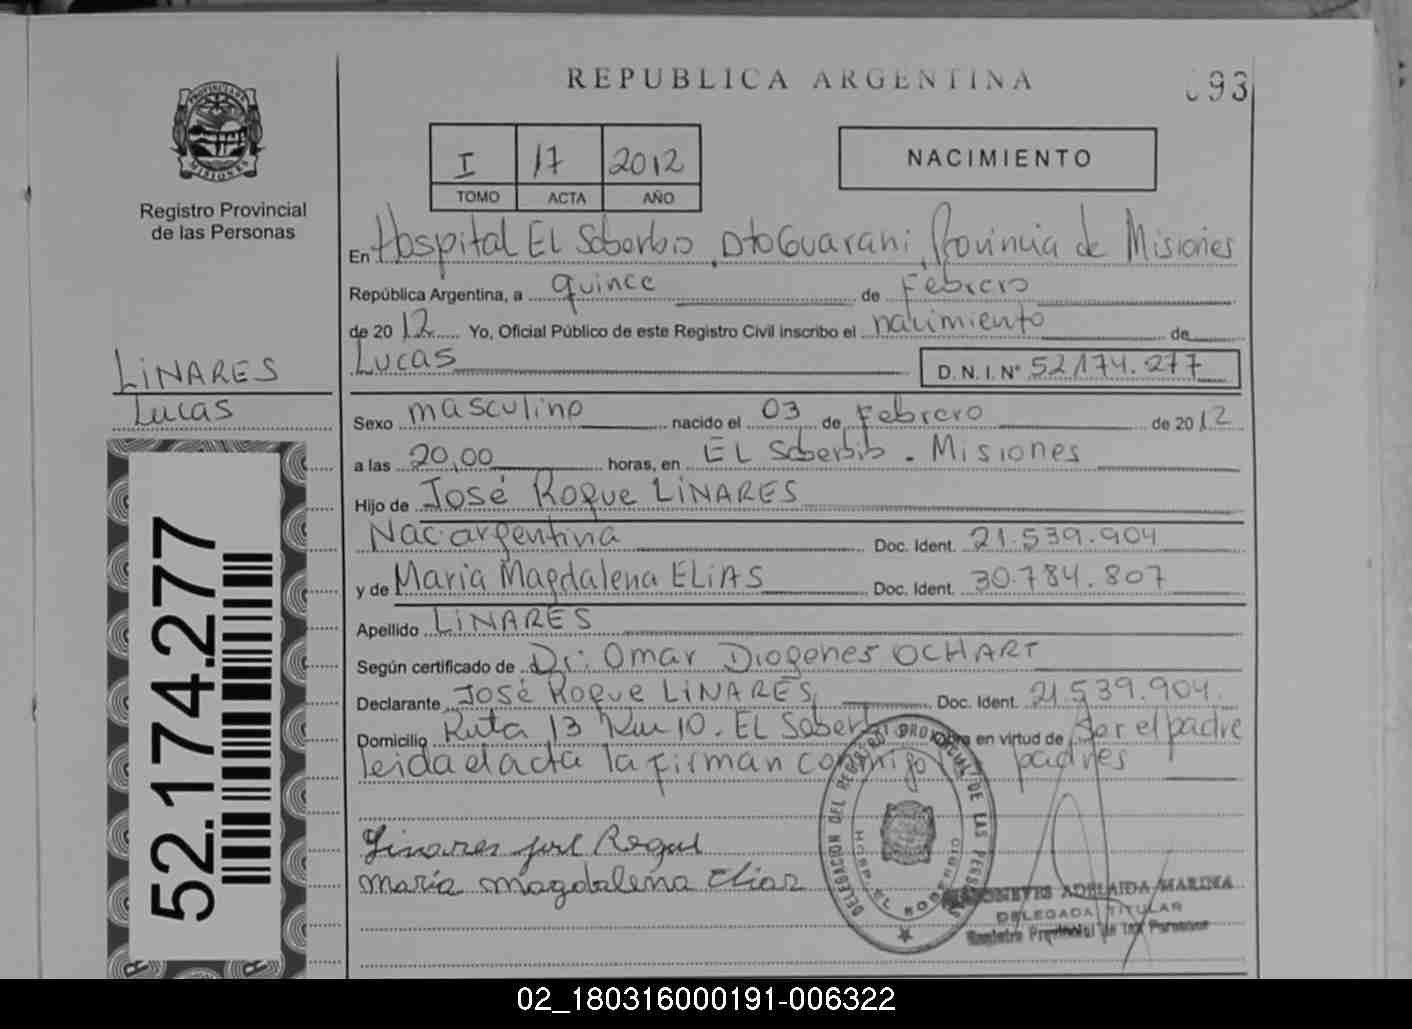 REPUBLICA ARGENTINA
093
PROVINCIA DE
MISIONES
Registro Provincial
de las Personas
I 17 2012
TOMO ACTA AÑO
NACIMIENTO
En Hospital EL Soberbio, Dto Guarani, Provincia de Misiones
República Argentina, a quince de Febrero
de 2012 Yo, Oficial Público de este Registro Civil inscribo el nacimiento de
Lucas D. N. I. N° 52.174.277
LINARES
Lucas
Sexo masculino nacido el 03 de Febrero de 2012
a las 20,00 horas, en EL Soberbio. Misiones
Hijo de José Roque LINARES
Nac. argentina Doc. Ident. 21.539.904
y de Maria Magdalena ELIAS Doc. Ident. 30.784.807
Apellido LINARES
Según certificado de Dr: Omar Diogenes OCHART
Declarante José Roque LINARES Doc. Ident. 21.539.904.
Domicilio Ruta 13 Km 10. EL Soberbio Obra en virtud de Ser el padre
leida el acta la firman conmigo padres
52.174.277
Linares José Roque
maría magdalena Elias
DELEGACION DEL REGISTRO PROVINCIAL DE LAS PERSONAS
HOSP. EL SOBERBIO
ADELAIDA MARINA
DELEGADA TITULAR
Registro Provincial de las Personas
02_180316000191-006322